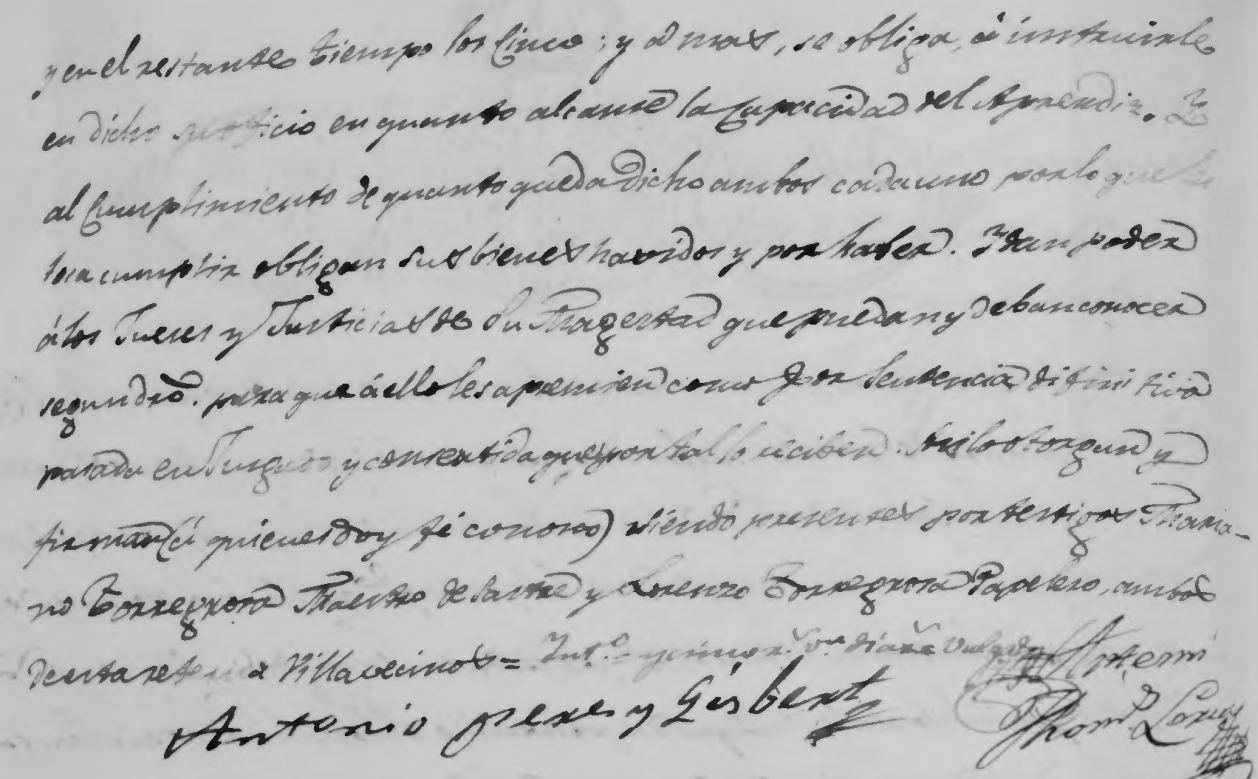 y en el restante tiempo los Cinco; y a mas, se obliga, á instruirle
en dicho su oficio en quanto alcanse la Capacidad del Aprendiz. Y
al Cumplimiento de quanto queda Dicho ambos cada uno por lo que les
toca cumplir obligan sus bienes havidos y por haber. Y dan poder
á los Jueses y Justicias de Su Magestad que puedan y deban conocer
segun dro. para que á ello les apremien como por Sentencia difinitiva
pasada en Jusgado y consentida que por tal lo reciben. Asi lo otorgan y
firman (á quienes doy fé conosco) siendo presentes por testigos Maria-
no Torregrosa Maestro de Sastre y Lorenzo Torregrosa Papelero, ambos
de esta Villa vecinos =
Antonio peres y Gisbert
Antemi
Thom.